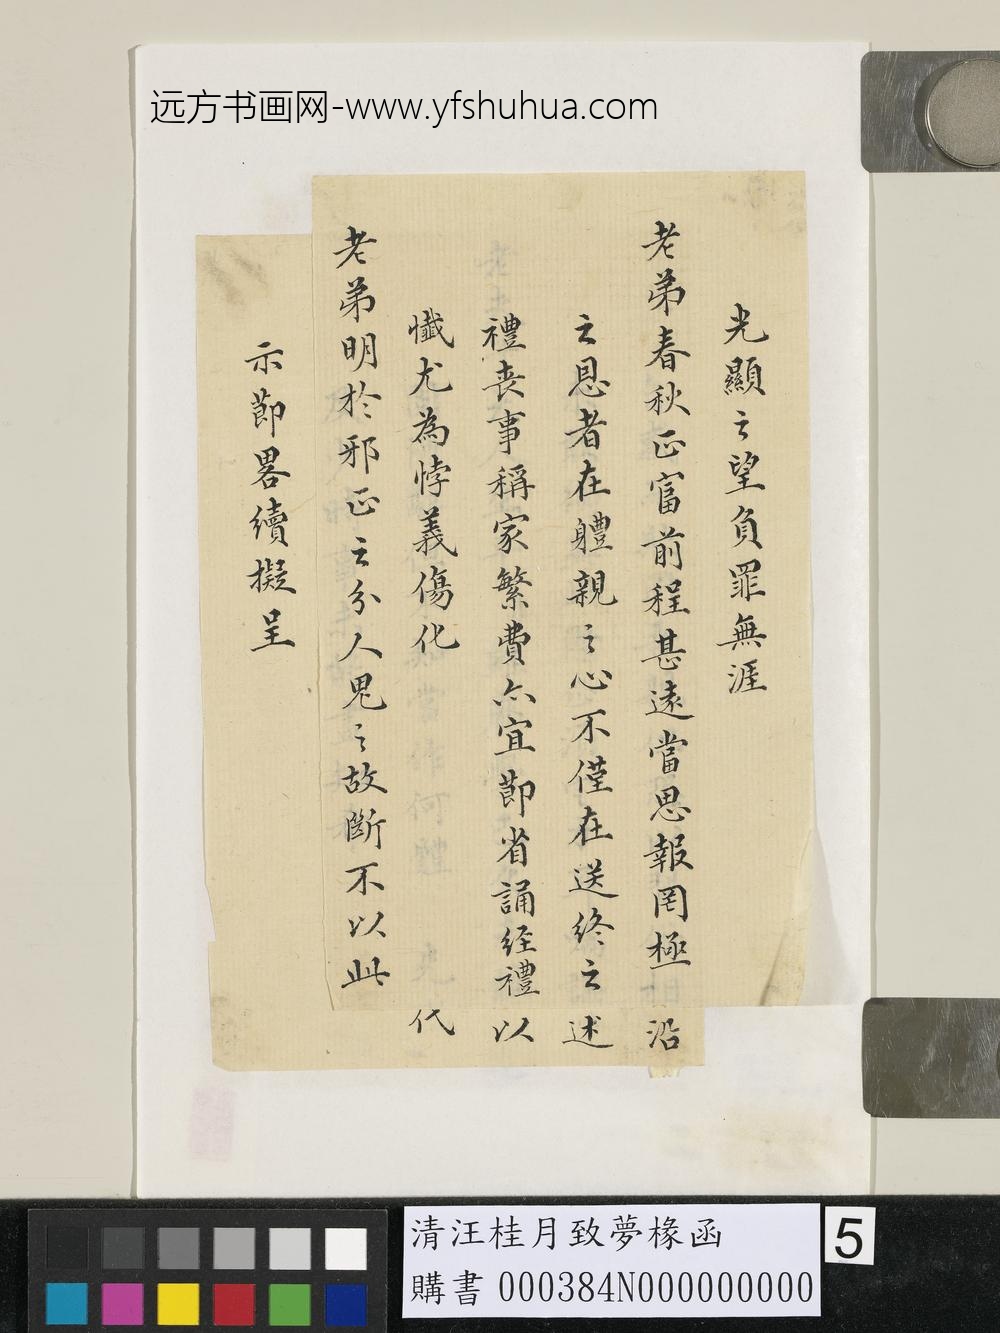 远方书画网-www.yfshuhua.com
光顯之望負罪無涯
老弟春秋正富前程甚遠當思報罔極
之恩者在軆親之心不僅在送終之
禮喪事稱家繁費亦宜節省誦經禮
懺尤為悖義傷化
老弟明於邪正之分人鬼之故斷不以此
沿
述
以
代
示節畧續擬呈
清汪桂月致夢椽函
購書 000384N000000000
5